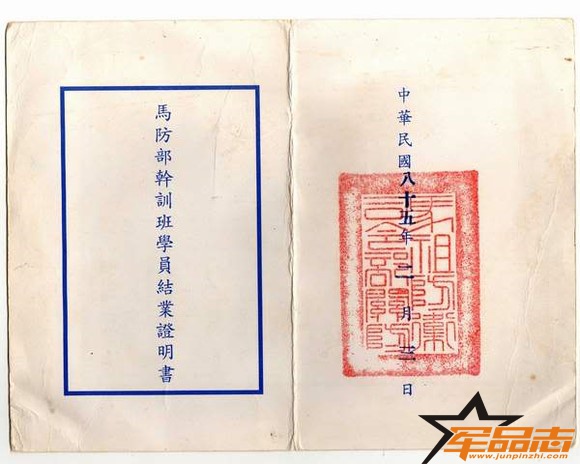 馬防部幹訓班學員結業證明書
中華民國八十五年二月日
馬祖防衛
司令部關防
军品志
www.junpinzhi.com